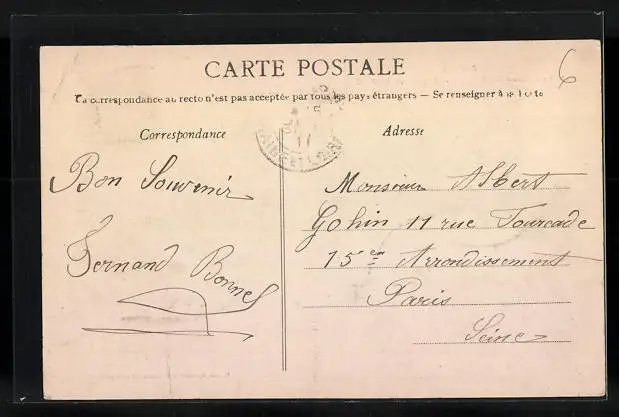 CARTE POSTALE
La correspondance au recto n'est pas acceptée par tous les pays étrangers — Se renseigner à la Poste
6
Correspondance
Adresse
Bon Souvenir
Fernand Bonnel
Monsieur Albert
Gohin 11 rue Fourcade
15em Arrondissement
Paris
Seine